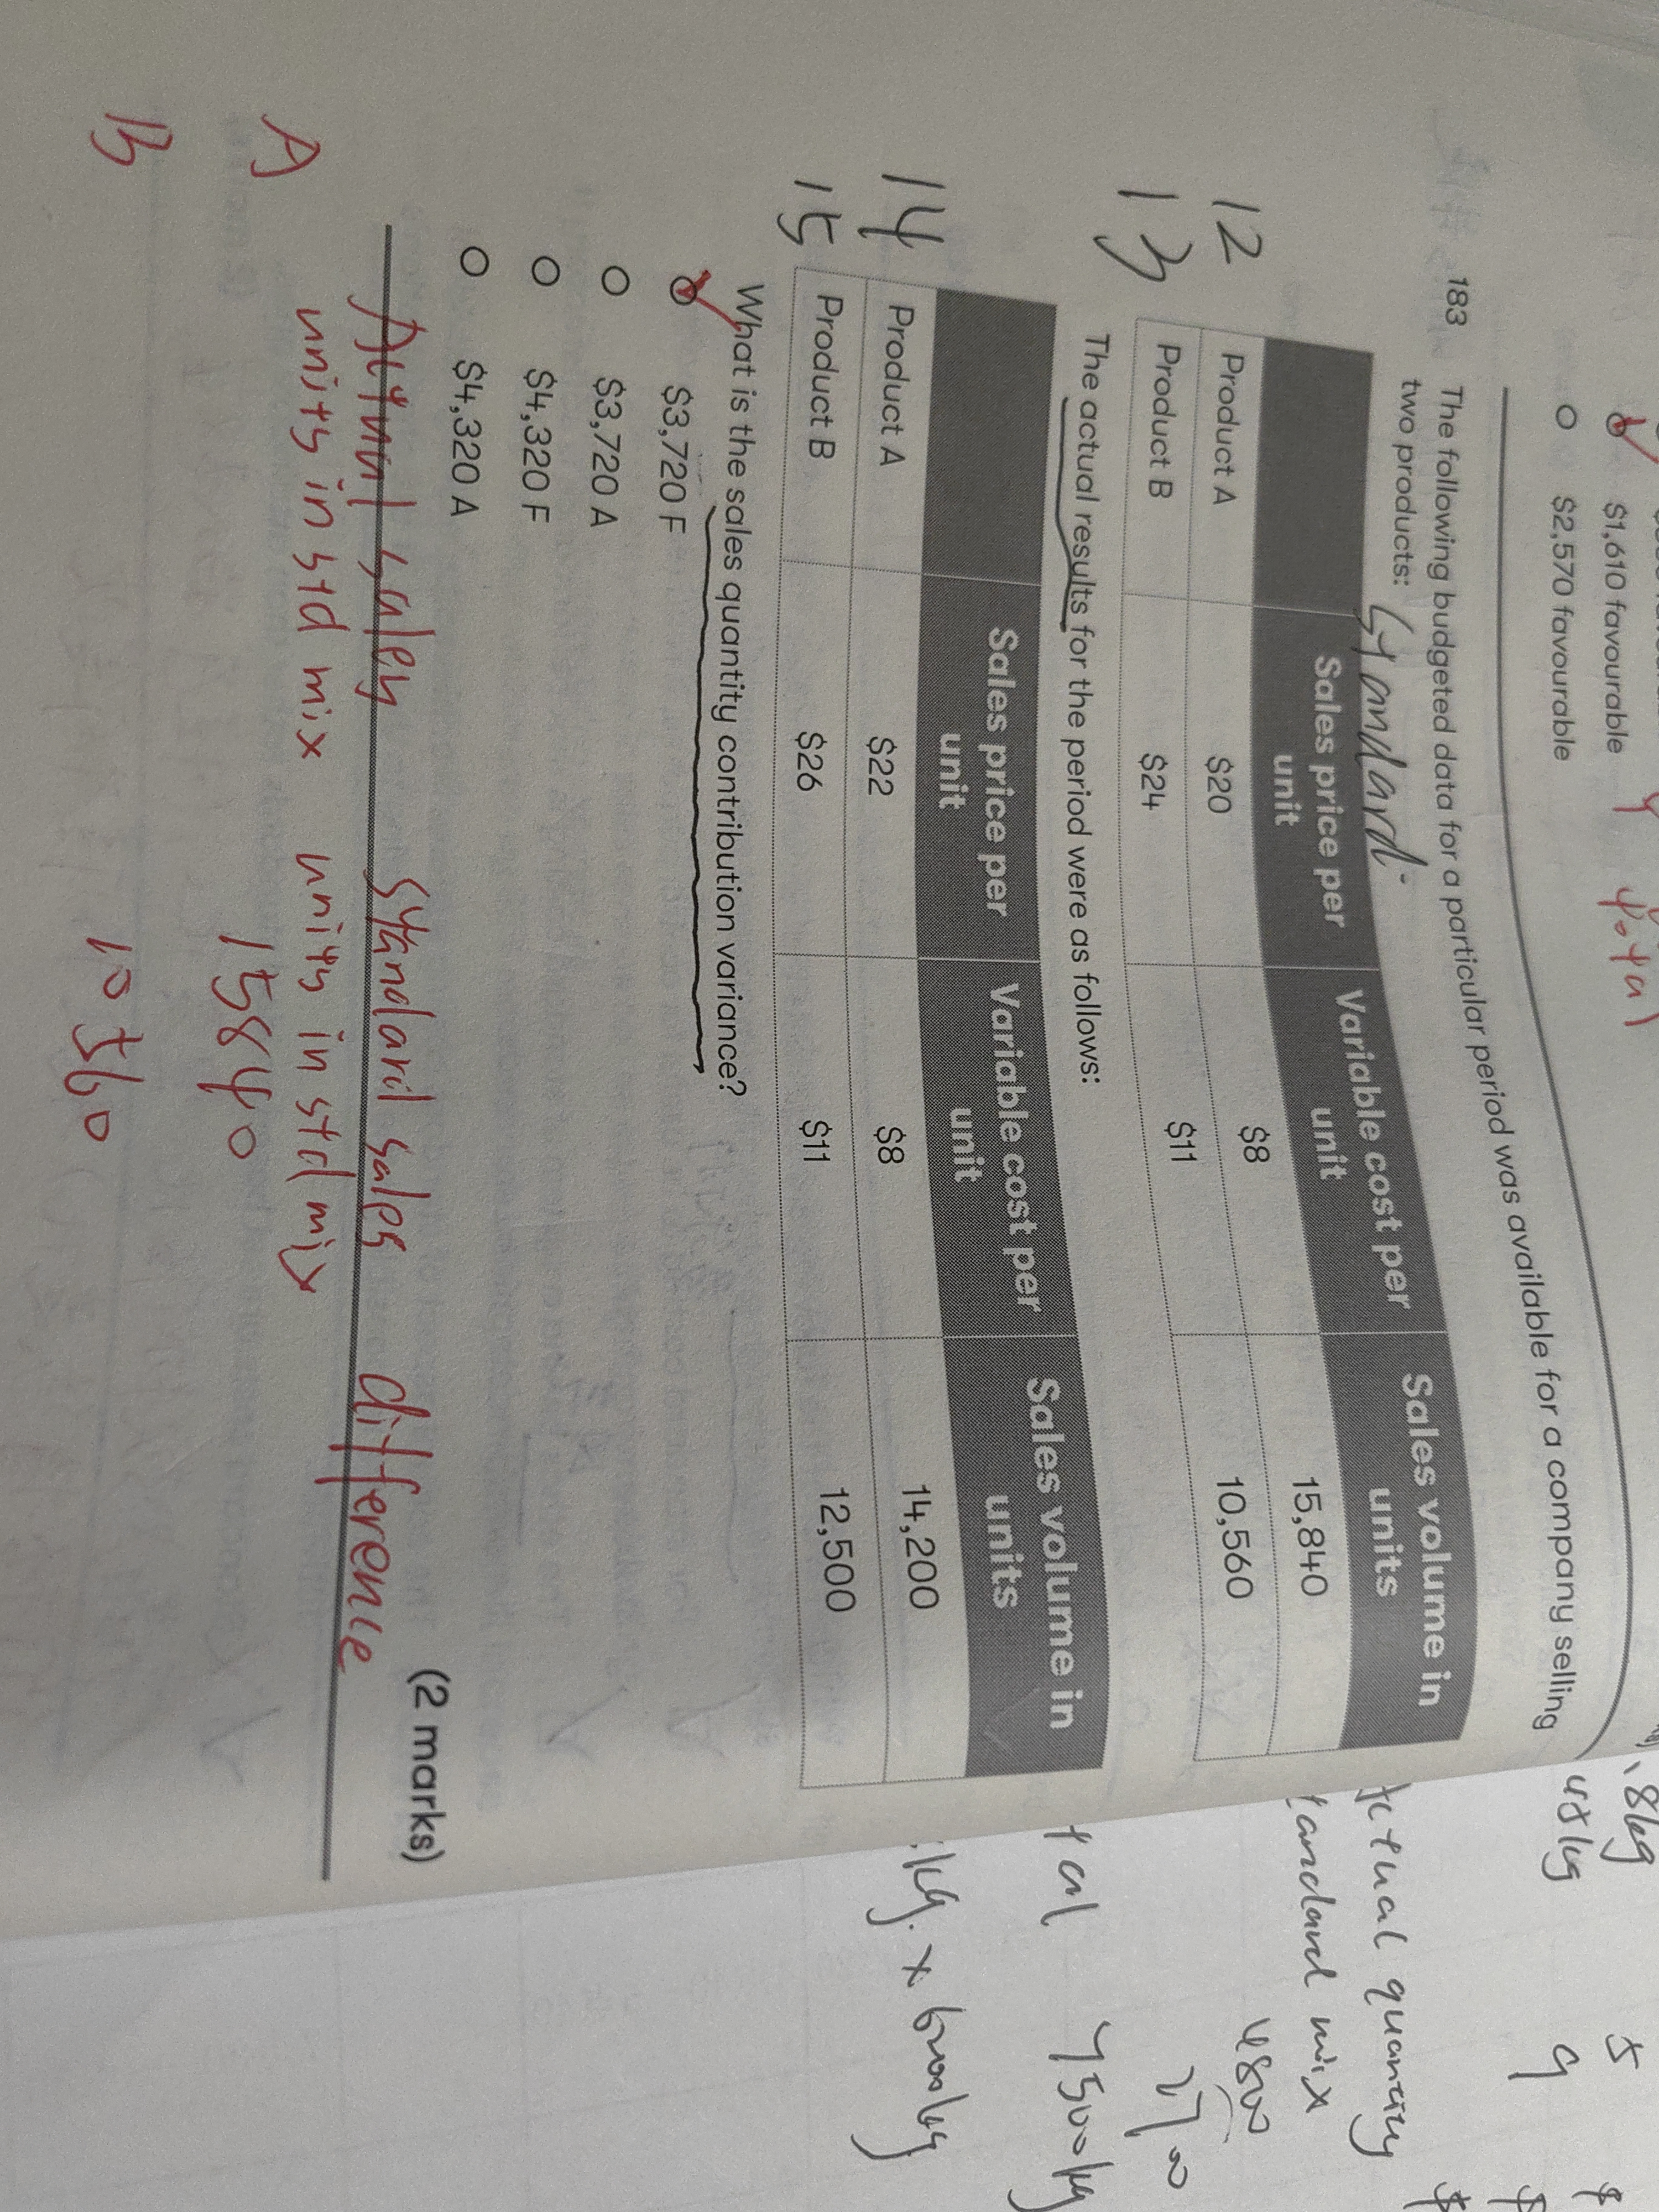 $1,610 favourable
$2,570 favourable
Total
183 The following budgeted data for a particular period was available for a company selling
two products: Standard
Sales price per unit Variable cost per unit Sales volume in units
12 Product A $20 $8 15,840
13 Product B $24 $11 10,560
The actual results for the period were as follows:
Sales price per unit Variable cost per unit Sales volume in units
14 Product A $22 $8 14,200
15 Product B $26 $11 12,500
What is the sales quantity contribution variance?
$3,720 F
$3,720 A
$4,320 F
$4,320 A
(2 marks)
Actual sales Standard sales difference
units in std mix units in std mix
A 15840
B 10560
5
9
actual quantity
standard mix
4800
2700
7500kg